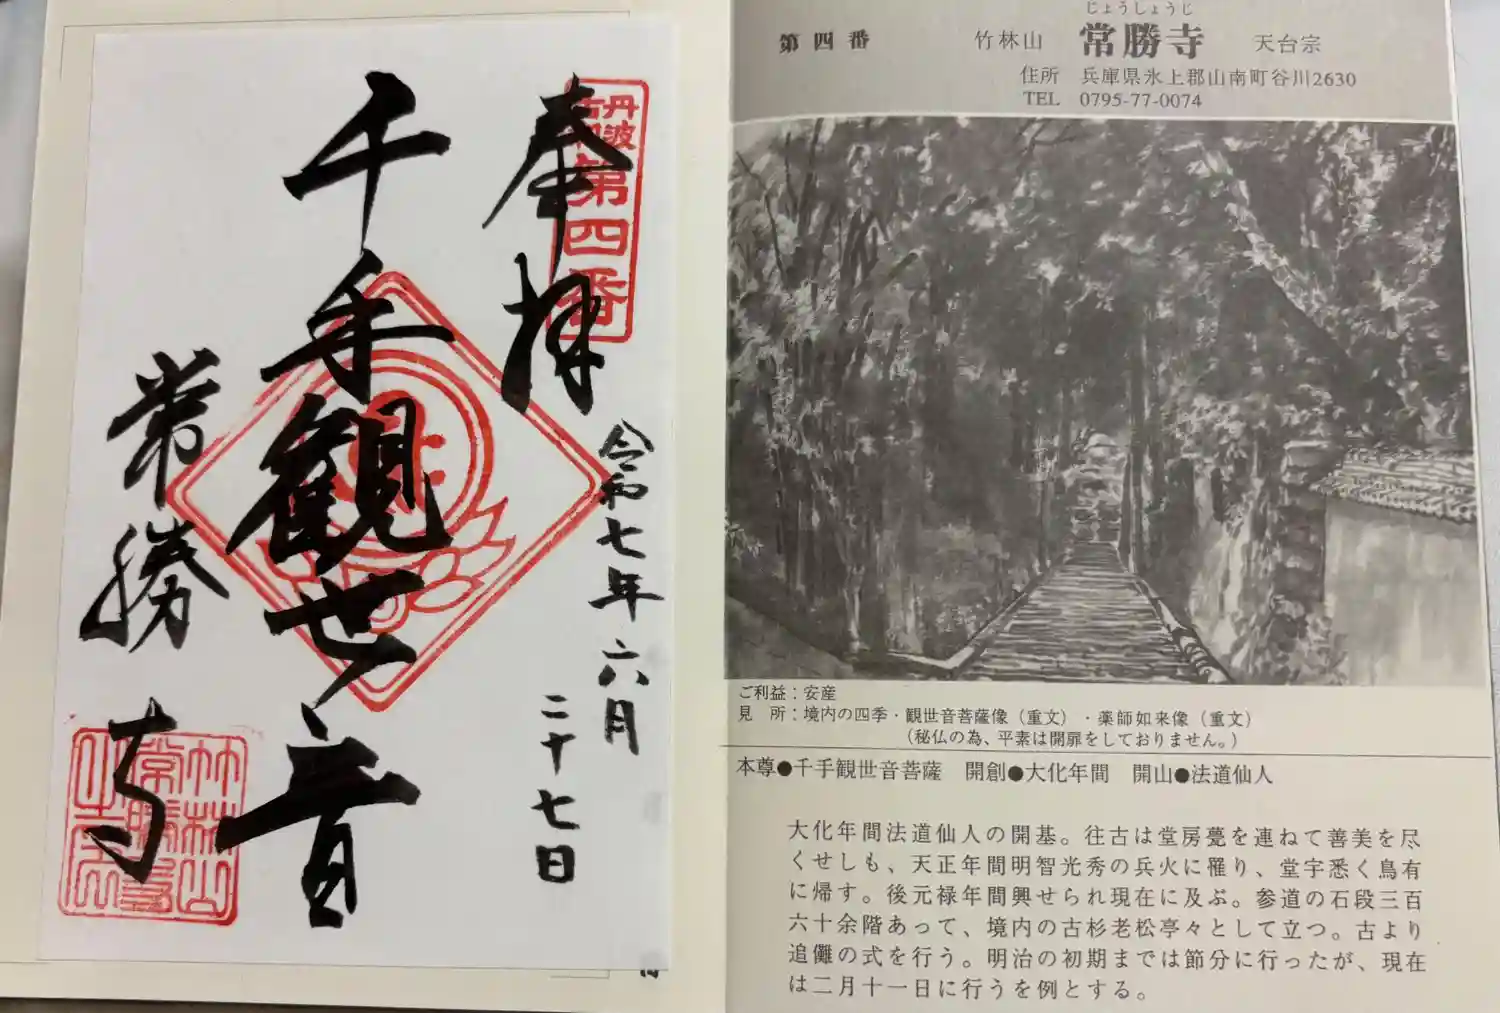 奉拝
丹波
第四番
令和七年六月
二十七日
千手観世音
常勝寺
竹林山
常勝寺
じょうしょうじ
第四番 竹林山 常勝寺 天台宗
住所 兵庫県氷上郡山南町谷川2630
TEL 0795-77-0074
ご利益：安産
見 所：境内の四季・観世音菩薩像（重文）・薬師如来像（重文）
（秘仏の為、平素は開扉をしておりません。）
本尊●千手観世音菩薩 開創●大化年間 開山●法道仙人
大化年間法道仙人の開基。往古は堂房甍を連ねて善美を尽
くせしも、天正年間明智光秀の兵火に罹り、堂宇悉く鳥有
に帰す。後元禄年間興せられ現在に及ぶ。参道の石段三百
六十余階あって、境内の古杉老松亭々として立つ。古より
追儺の式を行う。明治の初期までは節分に行ったが、現在
は二月十一日に行うを例とする。